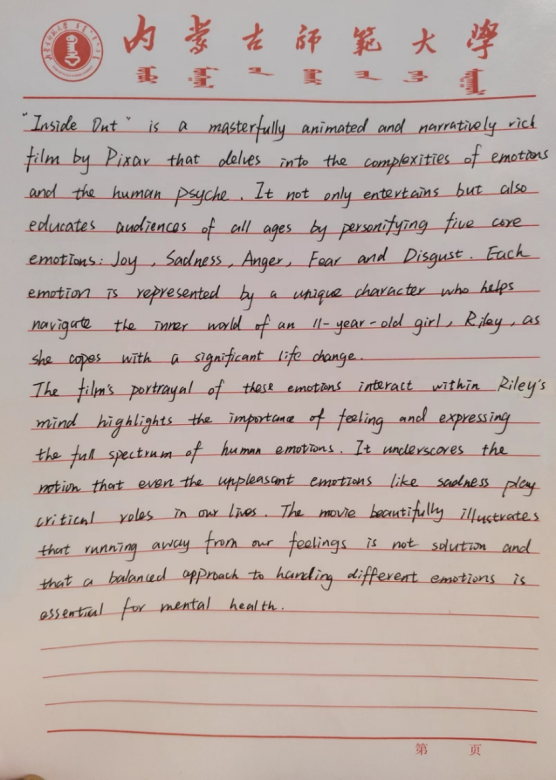 内蒙古師範大學
"Inside Out" is a masterfully animated and narratively rich
film by Pixar that delves into the complexities of emotions
and the human psyche. It not only entertains but also
educates audiences of all ages by personifying five core
emotions: Joy, Sadness, Anger, Fear and Disgust. Each
emotion is represented by a unique character who helps
navigate the inner world of an 11-year-old girl, Riley, as
she copes with a significant life change.
The film's portrayal of these emotions interact within Riley's
mind highlights the importance of feeling and expressing
the full spectrum of human emotions. It underscores the
notion that even the unpleasant emotions like sadness play
critical roles in our lives. The movie beautifully illustrates
that running away from our feelings is not solution and
that a balanced approach to handing different emotions is
essential for mental health.
第 页